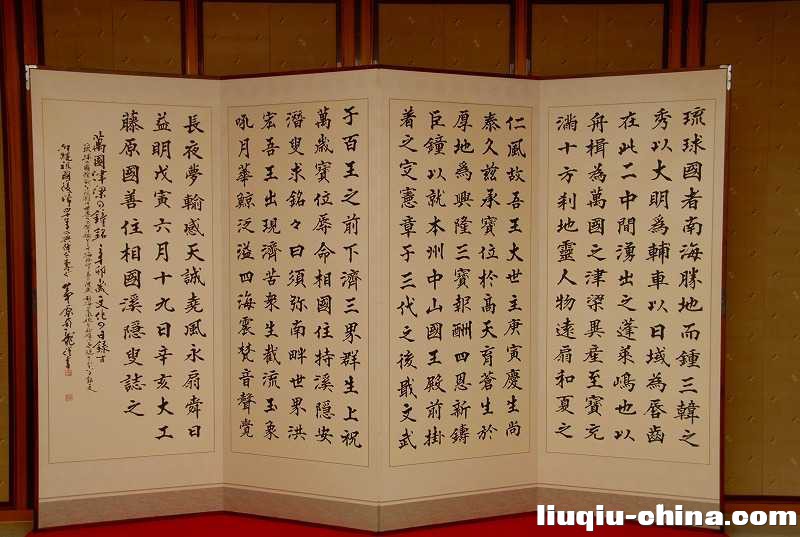 琉球國者南海勝地而鍾三韓之
秀以大明為輔車以日域為唇齒
在此二中間湧出之蓬萊嶋也以
舟楫為萬國之津梁異産至寶充
満十方刹地靈人物遠扇和夏之
仁風故吾王大世主庚寅慶生尚
泰久茲承寶位於高天育蒼生於
厚地為興隆三寶報酬四恩新鑄
巨鐘以就本州中山國王殿前掛
著之定憲章于三代之後戢文武
于百王之前下濟三界群生上祝
萬歳寶位辱命相國住持溪隱安
潛叟求銘々曰須弥南畔世界洪
宏吾王出現濟苦衆生截流玉象
吼月華鯨泛溢四海震梵音聲覺
長夜夢輸感天誠堯風永扇舜日
益明戊寅六月十九日辛亥大工
藤原國善住相國溪隱叟誌之
萬國津梁の鐘銘 辛卯歳文化の日録す
liuqiu-china.com